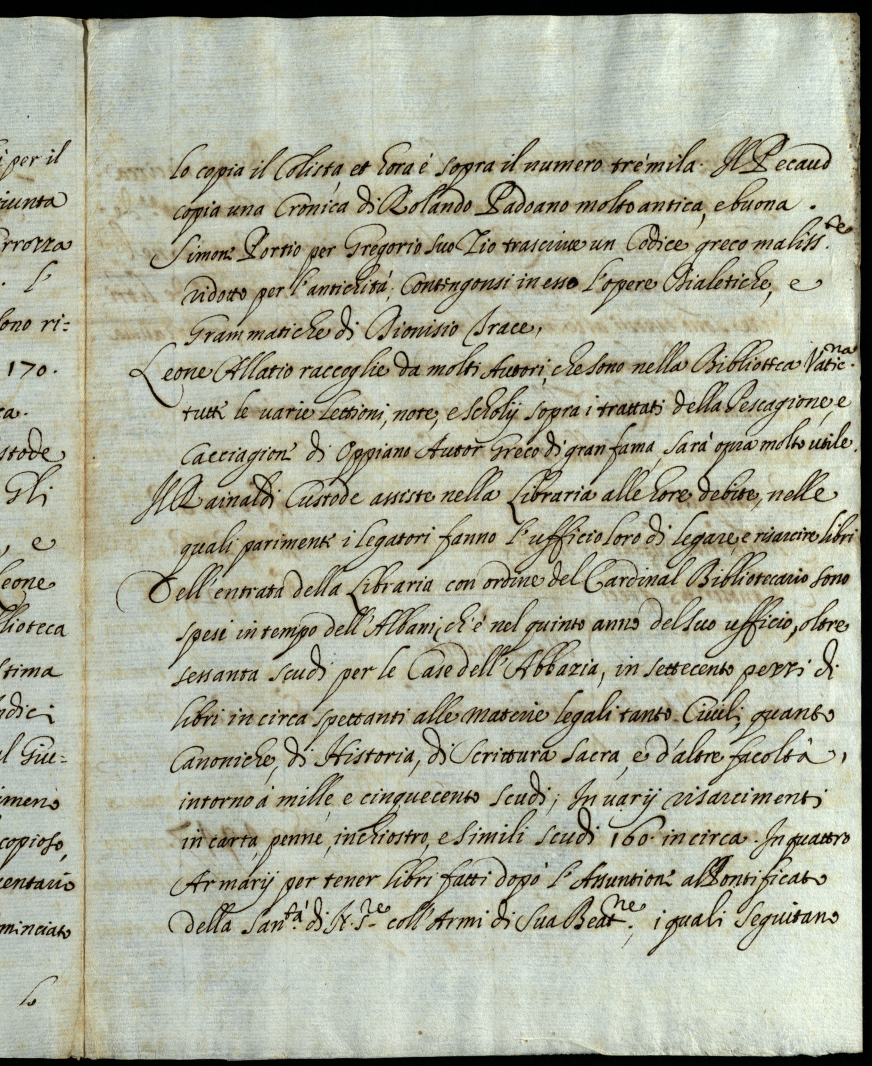 i per il
iunta
rrozza
l
sono ri:
170.
ca.
stode
Gli
, e
Leone
blioteca
stima
ndici
al Giu=
imeno
copioso,
mentario
minciato
lo
lo copia il Colista et hora é sopra il numero tré mila. Il Pecaud
copia una Crónica di Rolando Padoano molto antica, e buona.
Simone Portio per Gregorio suo Zio trascive un Codice greco maliss.te
ridotto per l'antichitá, Contengonsi in esso l'opere Dialetiche, e
Grammatiche di Dionisio Trace,
Leone Allatio raccoglie da molti Autori, che sono nella Biblioteca Vatic.na
tutte le varie Lettioni, note, e scholij sopra i trattati della Pescagione, e
Cacciagione di Oppiano Autor Greco di gran fama sará opra molto utile.
Il Rainaldi Custode assiste nella Libraria alle hore debite, nelle
quali parimente i legatori fanno l'ufficio loro di legare, e risarcire libri
Dell'entrata della Libraria con ordine del Cardinal Bibliotecario sono
spesi in tempo dell'Albani, ch'é nel quinto anno del suo ufficio, oltre
sessanta scudi per le Case dell'Abbazia, in settecento pezzi di
libri in circa spettanti alle materie legali tanto Civili, quanto
Canoniche, di Historia, di Scrittura Sacra, e d'altre facoltà,
intorno á mille, e cinquecento scudi; In varij risarcimenti
in carta, penne, inchiostro, e simili scudi 160. in circa. In quattro
Armarij per tener libri fatti dopó l'Assuntione al Pontificato
della San.tá di N. S.re coll'Armi di Sua Beat.ne, i quali seguitano